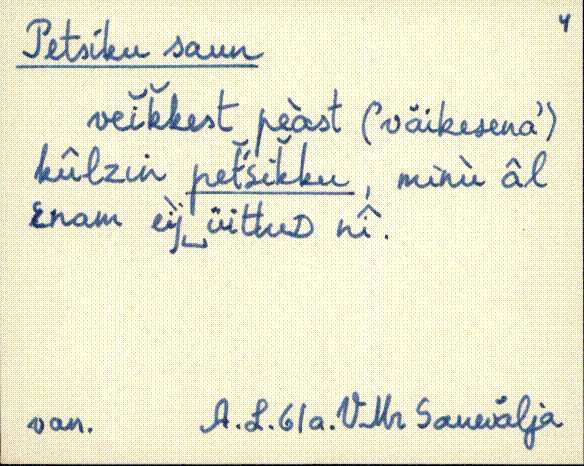 4
Petsiku saun
veĭk̆kest pèast ('väikesena')
kûlzin pet̆'sik̆ku, minù âl
enam eìj‿üittud nî.
van. A.L. 61a. V.Mr Saueválja